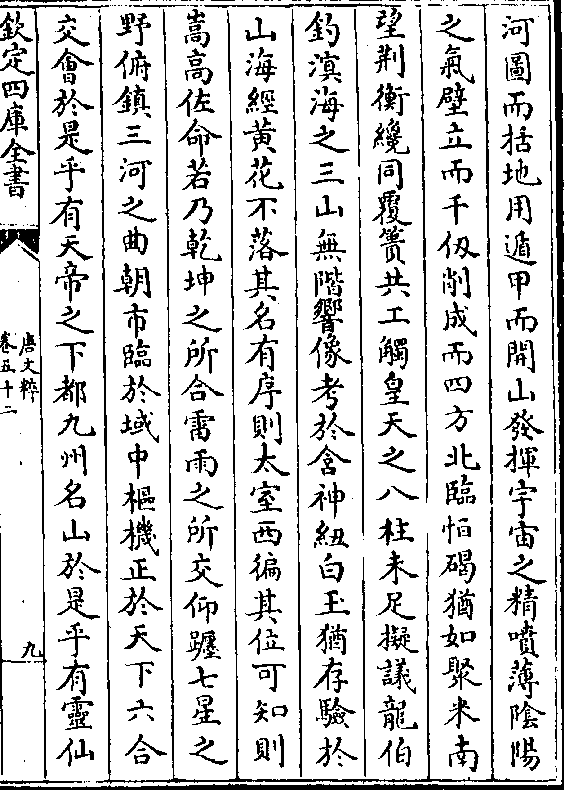 河圖而括地用遁甲而開山發揮宇宙之精噴薄陰陽
之氣壁立而千仭削成而四方北臨恒碣猶如聚米南
望荆衡纔同覆簣共工觸皇天之八柱未足擬議龍伯
釣滇海之三山無階響像考於含神紐白玉猶存驗於
山海經黄花不落其名有序則太室西徧其位可知則
嵩高佐命若乃乾坤之所合雷雨之所交仰躔七星之
野俯鎮三河之曲朝市臨於域中樞機正於天下六合
交會於是乎有天帝之下都九州名山於是乎有靈仙
欽定四庫全書
唐文粹
卷五十二
九